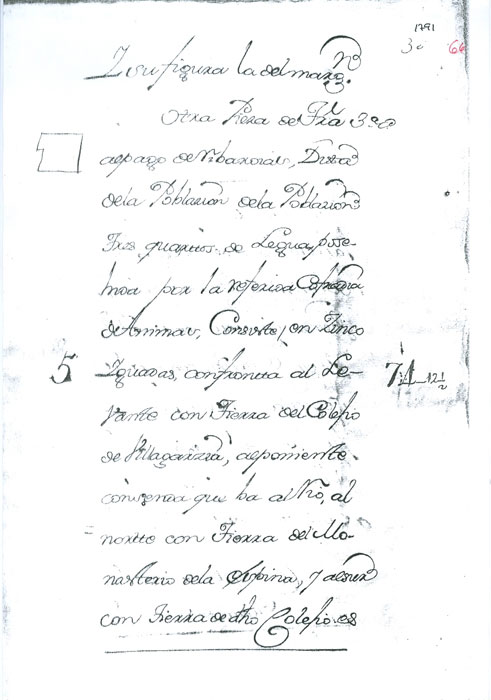 1791
30 66
Y su figura la del marg.n
Otra Pieza de Tra 3
al pago de Distta
de la Poblazion de la Poblazion
tres quartos de Legua, posse-
hida por la referida Cofradia
de Animas, Consiste, en Zinco
5 Yguadas, confronta al Le- 71
vante con Tierra del Colejio
de Villagarzia, al poniente
con senda que ba al Rio, al
nortte con Tierra del Mo-
nasterio de la Espina, y al sur
con Tierra de dho Colejio es